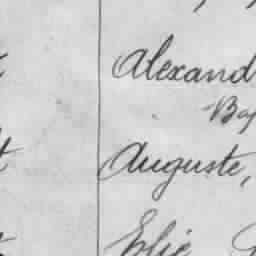 Alexand
Bap
Auguste,
Elie